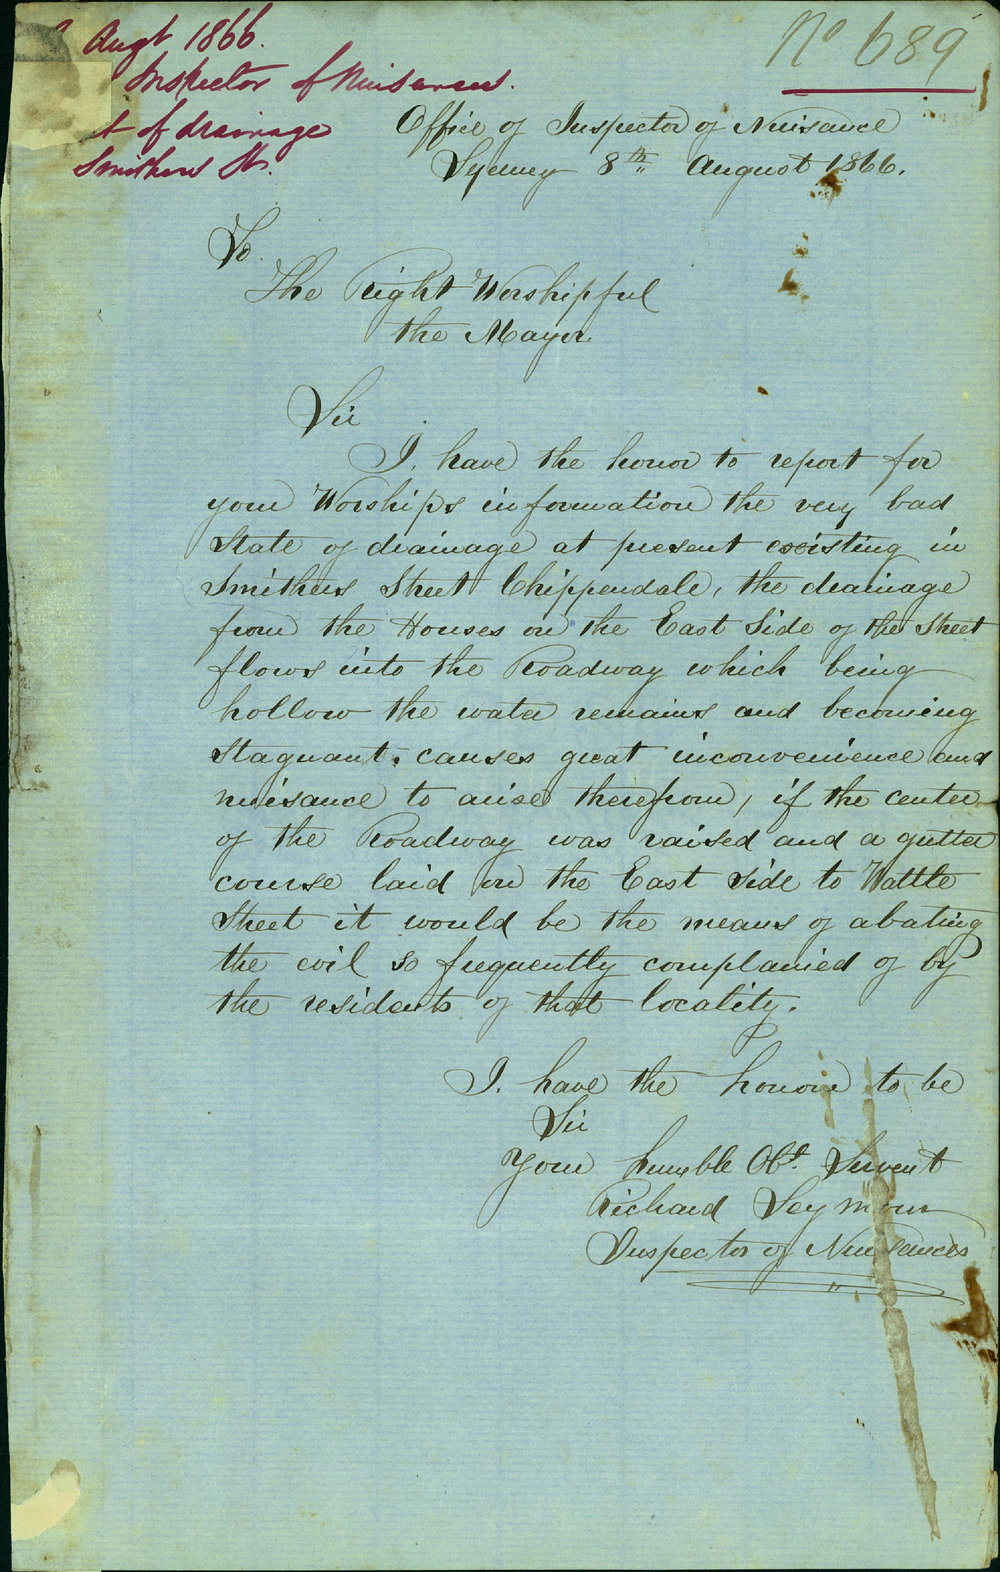 Augt 1866.
Inspector of Nuisances.
t of drainage
Smithers St.
No 689
Office of Inspector of Nuisance
Sydney 8th August 1866.
To
The Right Worshipful
the Mayor
Sir
I. have the honor to report for
your Worships information the very bad
State of drainage at present existing in
Smithers Street Chippendale, the drainage
from the Houses on the East Side of the Street
flows into the Roadway which being
hollow the water remains and becoming
stagnant. causes great inconvenience and
nuisance to arise therefrom, if the center
of the Roadway was raised and a gutter
course laid on the East side to Wattle
Street it would be the means of abating
the evil so frequently complanied of by
the residents of that locality.
I. have the honour to be
Sir
Your humble Obt. Servent
Richard Seymour
Inspector of Nuisances